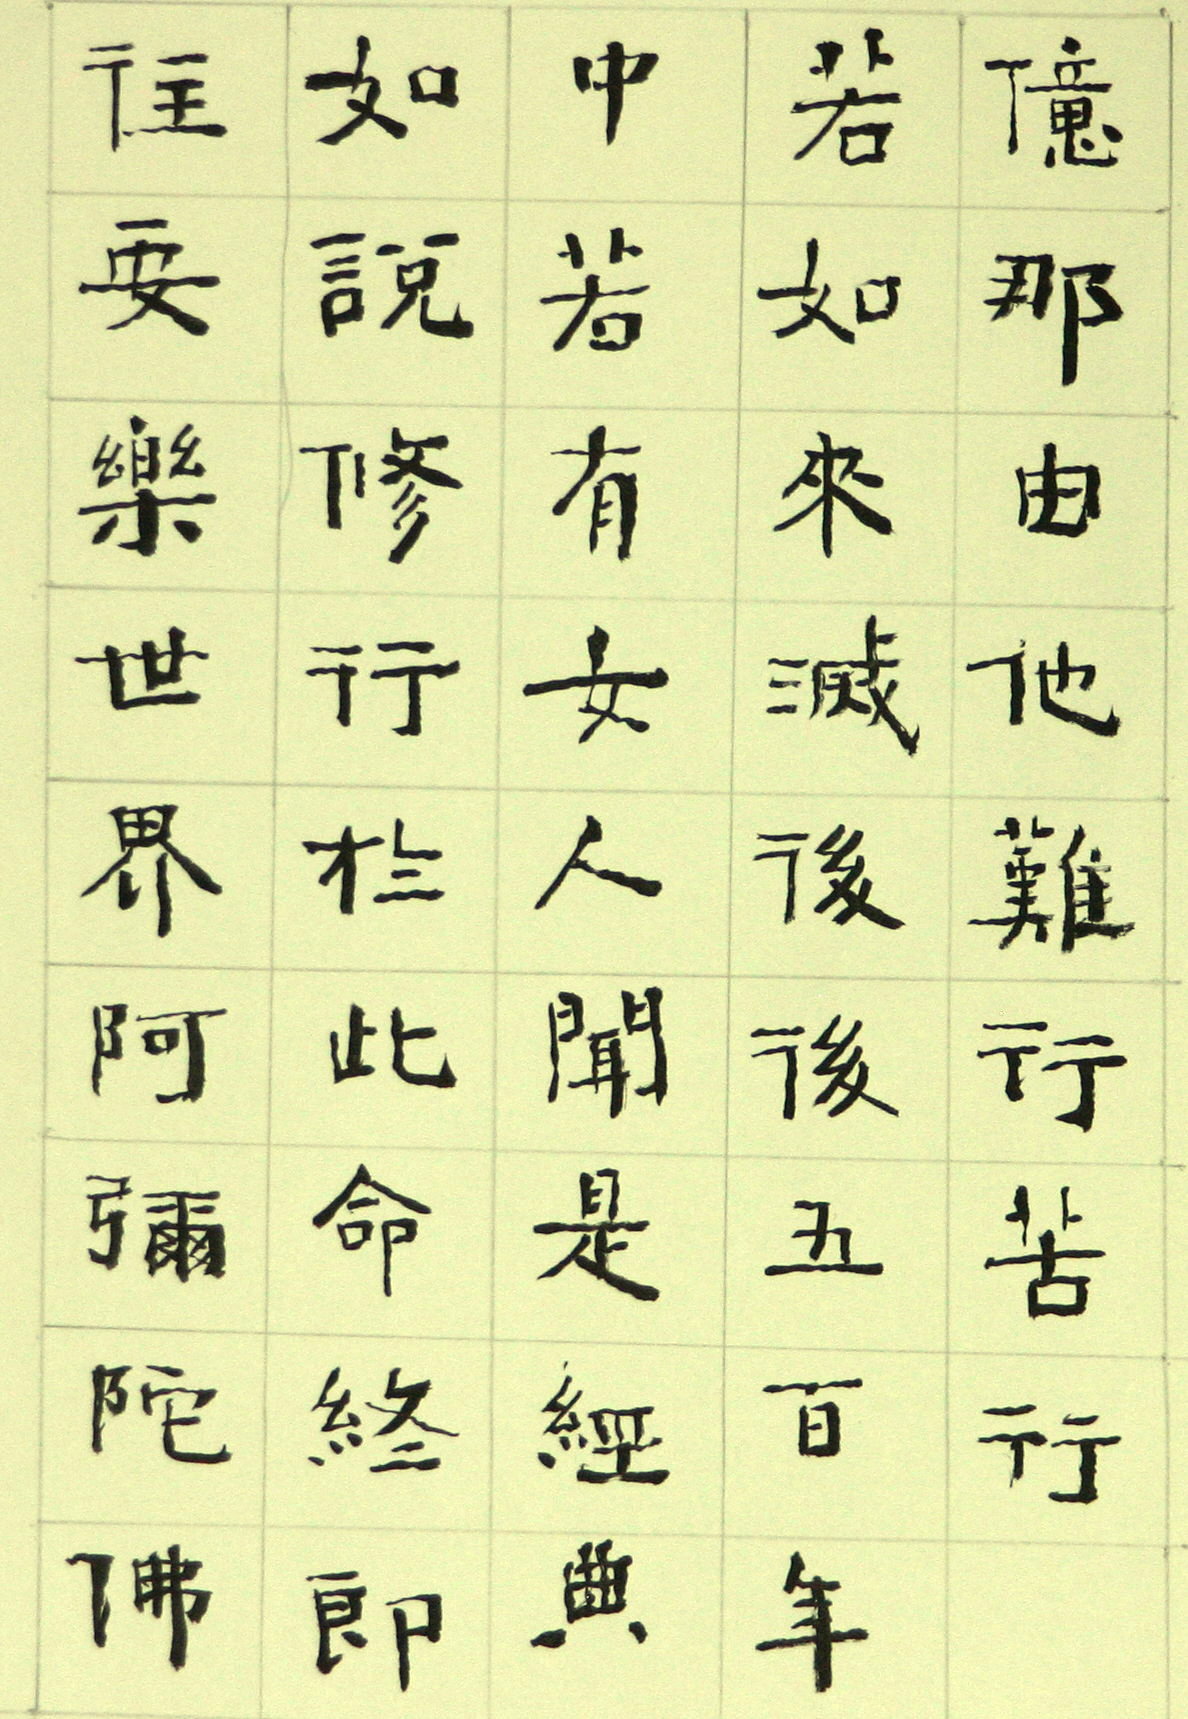 億那由他難行苦行
若如來滅後後五百年
中若有女人聞是經典
如說修行於此命終即
往安樂世界阿彌陀佛